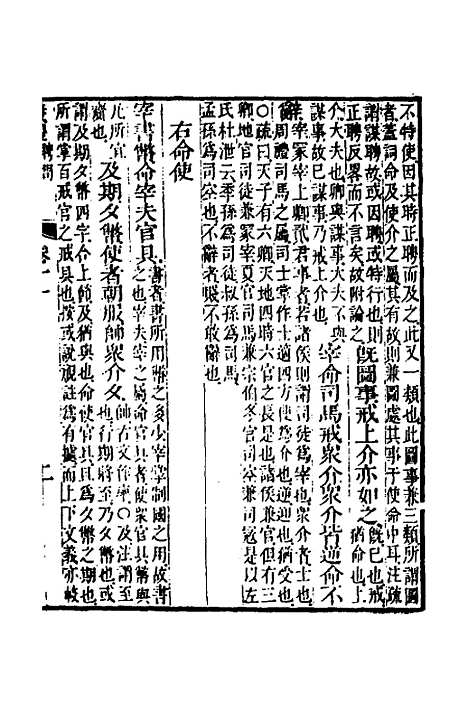 不特使因其時正聘而及之此又一類也此圖事兼三類所謂圖
者蓋詞命及使介之屬其有故則兼圖處其事于使命中耳注疏
謂謀聘故或因聘或特行也則
正聘反畧而不言矣故附論之
既圖事戒上介亦如之
既已也戒
猶命也上
介大夫也卿與謀事大夫不與
謀事故已謀事乃戒上介也
宰命司馬戒衆介衆介皆逆命不
辭
宰冢宰上卿貳君事者若諸侯則謂司徒爲宰也衆介者士也
周禮司馬之屬司士掌作士適四方使爲介也逆迎也猶受也
○疏曰天子有六卿天地四時六官之長是也諸侯兼官但有三
卿地官司徒兼冢宰夏官司馬兼宗伯冬官司空兼司寇是以左
氏杜泄云季孫爲司徒叔孫爲司馬
孟孫爲司空也不敢辭者賤不敢辭也
右命使
宰書幣命宰夫官具
書者書所用幣之多少宰掌制國之用故書
之也宰夫宰之屬命官具者使衆官具幣與
凡所宜
齎也
及期夕幣使者朝服帥衆介夕
帥古文作率○及注謂至
也行期將至乃夕幣也或
謂及期夕幣四字合上節及猶與也命使官具且爲夕幣之期也
所謂掌百戒官之戒具也按或說註爲有據而上下文義亦岐
聘問
卷十一